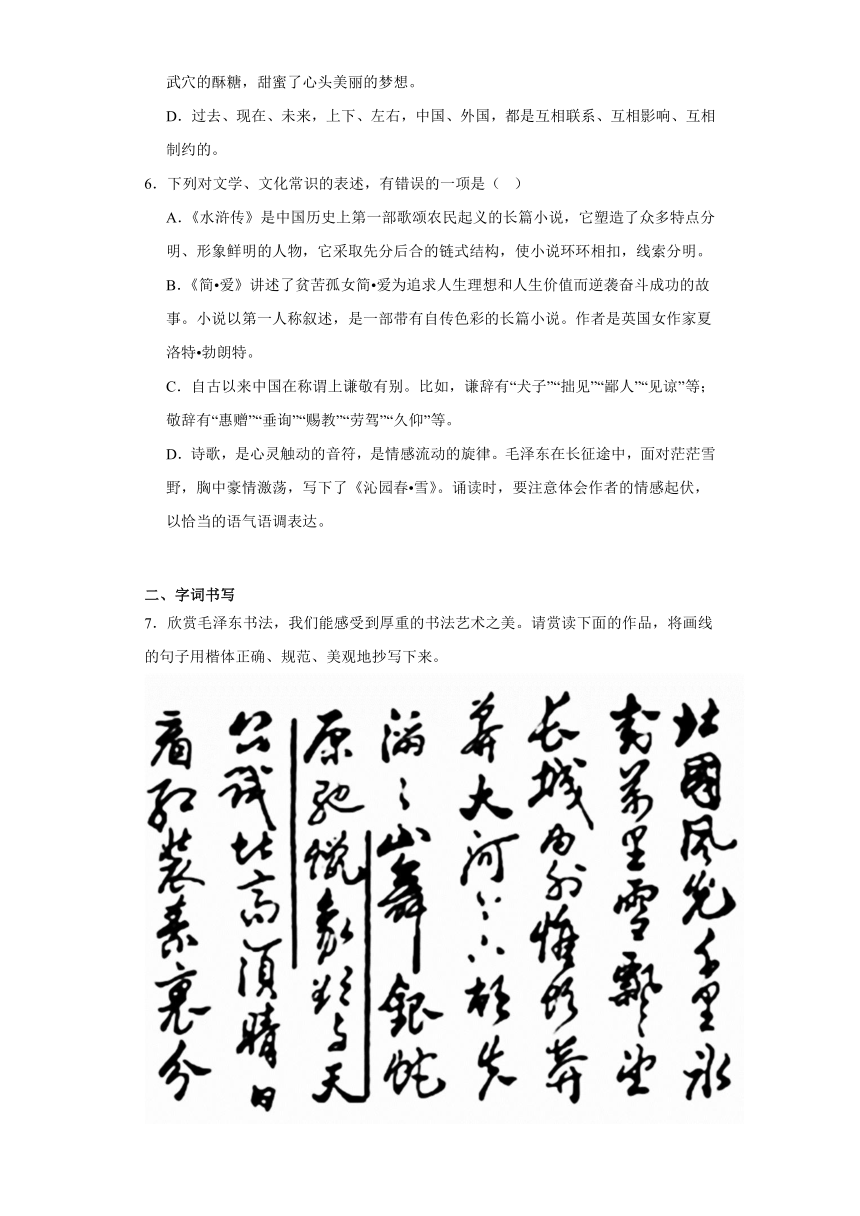 武穴的酥糖，甜蜜了心头美丽的梦想。
D．过去、现在、未来，上下、左右，中国、外国，都是互相联系、互相影响、互相
制约的。
6．下列对文学、文化常识的表述，有错误的一项是（　）
A．《水浒传》是中国历史上第一部歌颂农民起义的长篇小说，它塑造了众多特点分
明、形象鲜明的人物，它采取先分后合的链式结构，使小说环环相扣，线索分明。
B．《简•爱》讲述了贫苦孤女简•爱为追求人生理想和人生价值而逆袭奋斗成功的故
事。小说以第一人称叙述，是一部带有自传色彩的长篇小说。作者是英国女作家夏
洛特•勃朗特。
C．自古以来中国在称谓上谦敬有别。比如，谦辞有“犬子”“拙见”“鄙人”“见谅”等；
敬辞有“惠赠”“垂询”“赐教”“劳驾”“久仰”等。
D．诗歌，是心灵触动的音符，是情感流动的旋律。毛泽东在长征途中，面对茫茫雪
野，胸中豪情激荡，写下了《沁园春•雪》。诵读时，要注意体会作者的情感起伏，
以恰当的语气语调表达。
二、字词书写
7．欣赏毛泽东书法，我们能感受到厚重的书法艺术之美。请赏读下面的作品，将画线
的句子用楷体正确、规范、美观地抄写下来。
北國風光千里冰
封萬里雪飄〻望
長城内外惟餘莽
莽大河上下頓失
滔〻山舞銀蛇
原馳蠟象欲与天
公試比高須晴日
看紅裝素裹分